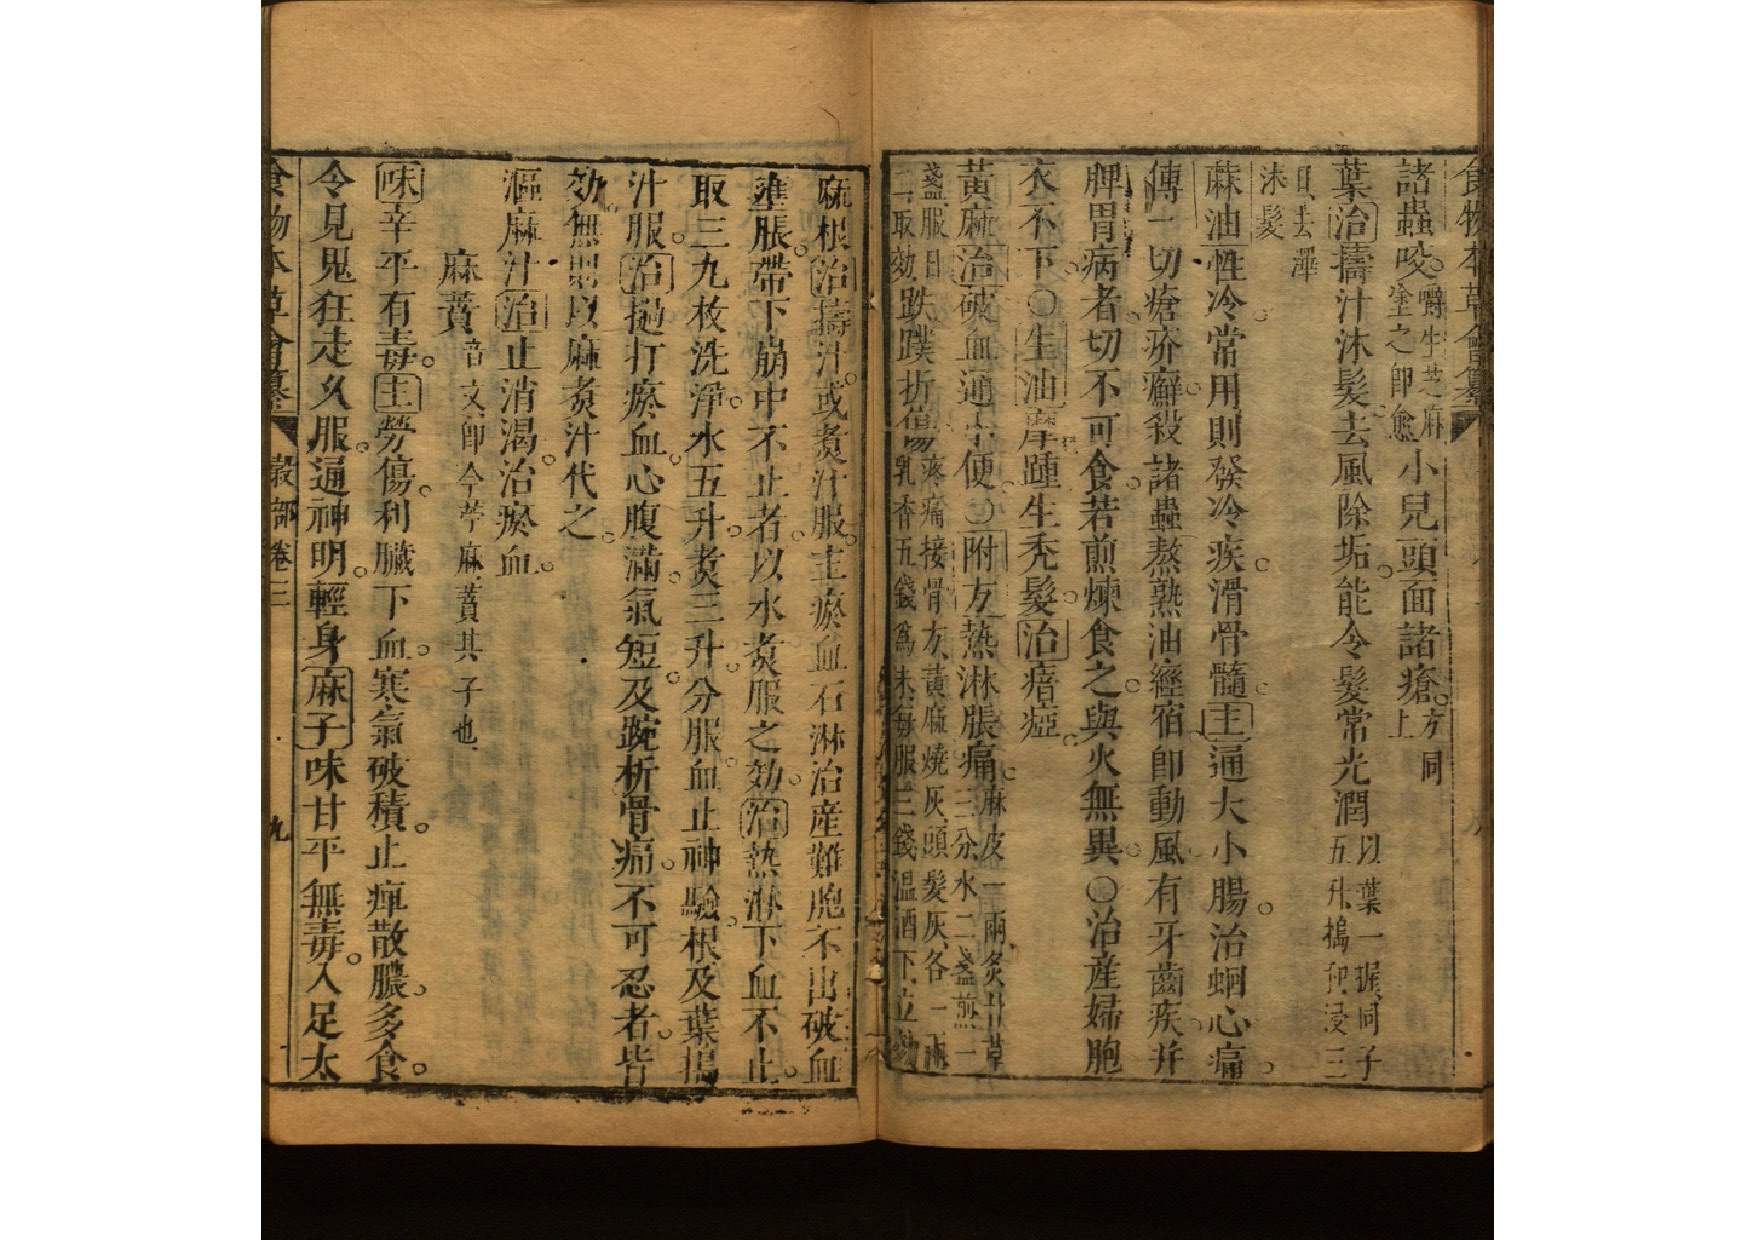 食物本草會纂
諸蟲咬嚼生芝麻塗之卽愈小兒頭面諸瘡方同上
葉治擣汁沐髮去風除垢能令髮常光潤以葉一握同子五升搗和浸三
日去滓沐髮
蔴油性冷常用則發冷疾滑骨髓主通大小腸治蛔心痛
傅一切瘡疥癬殺諸蟲熬熟油經宿卽動風有牙齒疾并
脾胃病者切不可食若煎煉食之與火無異○治産婦胞
衣不下○生油摩踵生禿髮治瘖瘂
黃麻治破血通小便○附方熱淋脹痛麻皮一兩炙甘草三分水二盞煎一
盞服日二取効跌蹼折傷疼痛接骨方黃麻燒灰頭髮灰各一兩乳香五錢爲末每服三錢溫酒下立効
麻根治擣汁或煑汁服主瘀血石淋治産難胞不出破血
壅脹帶下崩中不止者以水煑服之効治熱淋下血不止
取三九枚洗淨水五升煑三升分服血止神驗根及葉搗
汁服治撾打瘀血心腹滿氣短及踠折骨痛不可忍者皆
効無則以麻煑汁代之
漚麻汁治止消渴治瘀血
麻蕡音文卽今苧麻蕡其子也
味辛平有毒主勞傷利臟下血寒氣破積止痺散膿多食
令見鬼狂走久服通神明輕身麻子味甘平無毒入足太
食物本草會纂 穀部卷二 九